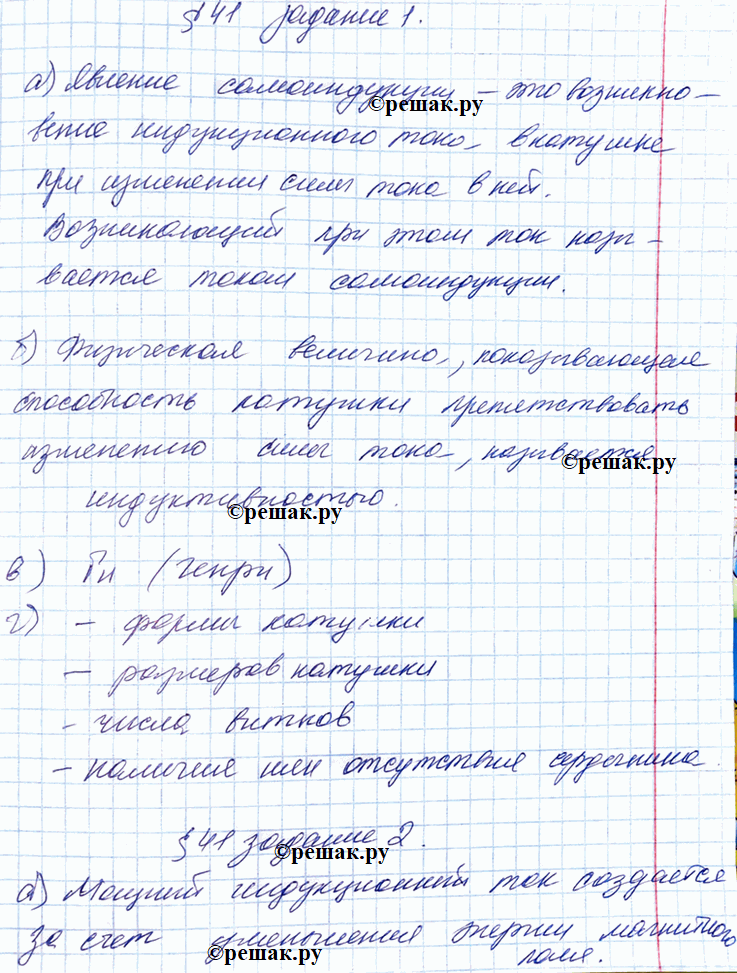 §41 задание 1.
а) Явление самоиндукции – это возникно–
©решак.ру
вение индукционного тока в катушке
при изменении силы тока в ней.
Возникающий при этом ток назы–
вается током самоиндукции.
б) Физическая величина, показывающая
способность катушки препятствовать
изменению силы тока, называется
©решак.ру
индуктивностью.
©решак.ру
в) Гн (Генри)
г) – формы катушки
– размеров катушки
– числа витков
– наличия или отсутствия сердечника.
§41 задание 2.
©решак.ру
а) Мощный индукционный ток создается
за счет уменьшения энергии магнитного
поля.
©решак.ру